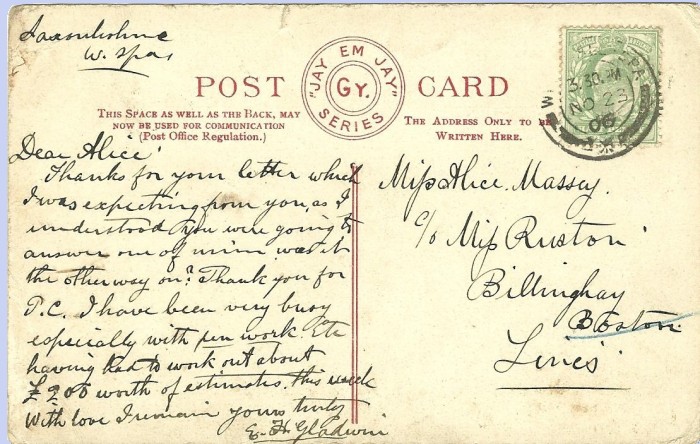 Saxonholme
W. Spa
POST CARD
"JAY EM JAY" SERIES
Gy.
THIS SPACE AS WELL AS THE BACK, MAY
NOW BE USED FOR COMMUNICATION
(Post Office Regulation.)
THE ADDRESS ONLY TO BE
WRITTEN HERE.
3.30 PM
NO 23
06
Dear Alice
Thanks for your letter which
I was expecting from you, as I
understood you were going to
answer one of mine was it
the other way on? Thank you for
P.C. I have been very busy
especially with pen work. Etc
having had to work out about
£200 worth of estimates this week
With love I remain yours truly
E. H. Gladwin
Miss Alice Massey.
c/o Miss Ruston
Billinghay
Boston
Lincs